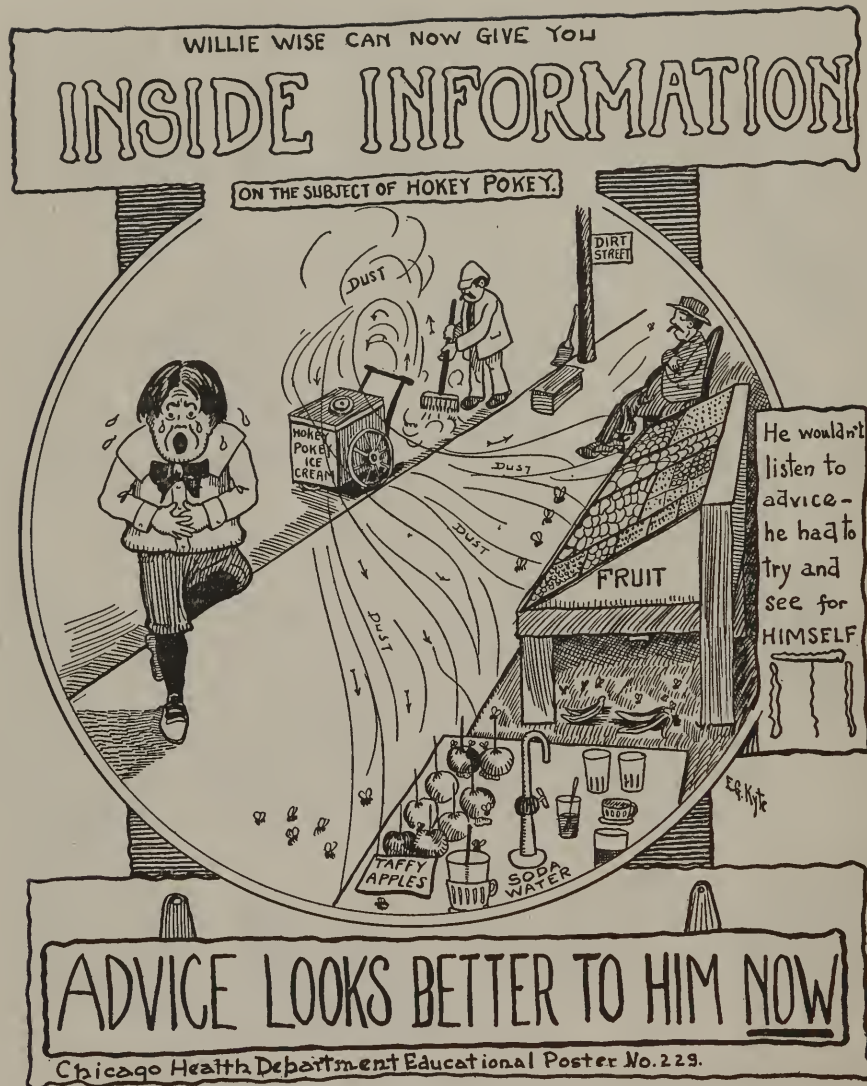 WILLIE WISE CAN NOW GIVE YOU
INSIDE INFORMATION
ON THE SUBJECT OF HOKEY POKEY.
DIRT
STREET
DUST
HOKEY
POKEY
ICE
CREAM
DUST
DUST
DUST
FRUIT
He wouldn't
listen to
advice-
he had to
try and
see for
HIMSELF
E.G. Kyte
TAFFY
APPLES
SODA
WATER
ADVICE LOOKS BETTER TO HIM NOW
Chicago Health Department Educational Poster No. 229.